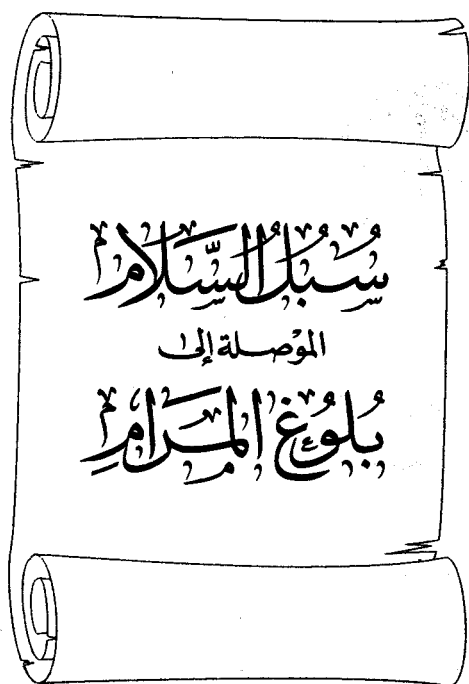 سُبُلُ السَّلَام
الموصلة إلى
بُلُوغِ المَرَامِ